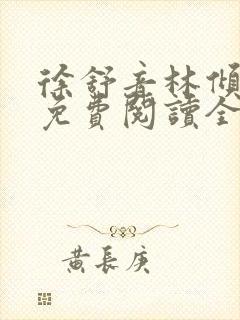 徐舒音林傾
免費閱讀全
黃長庚